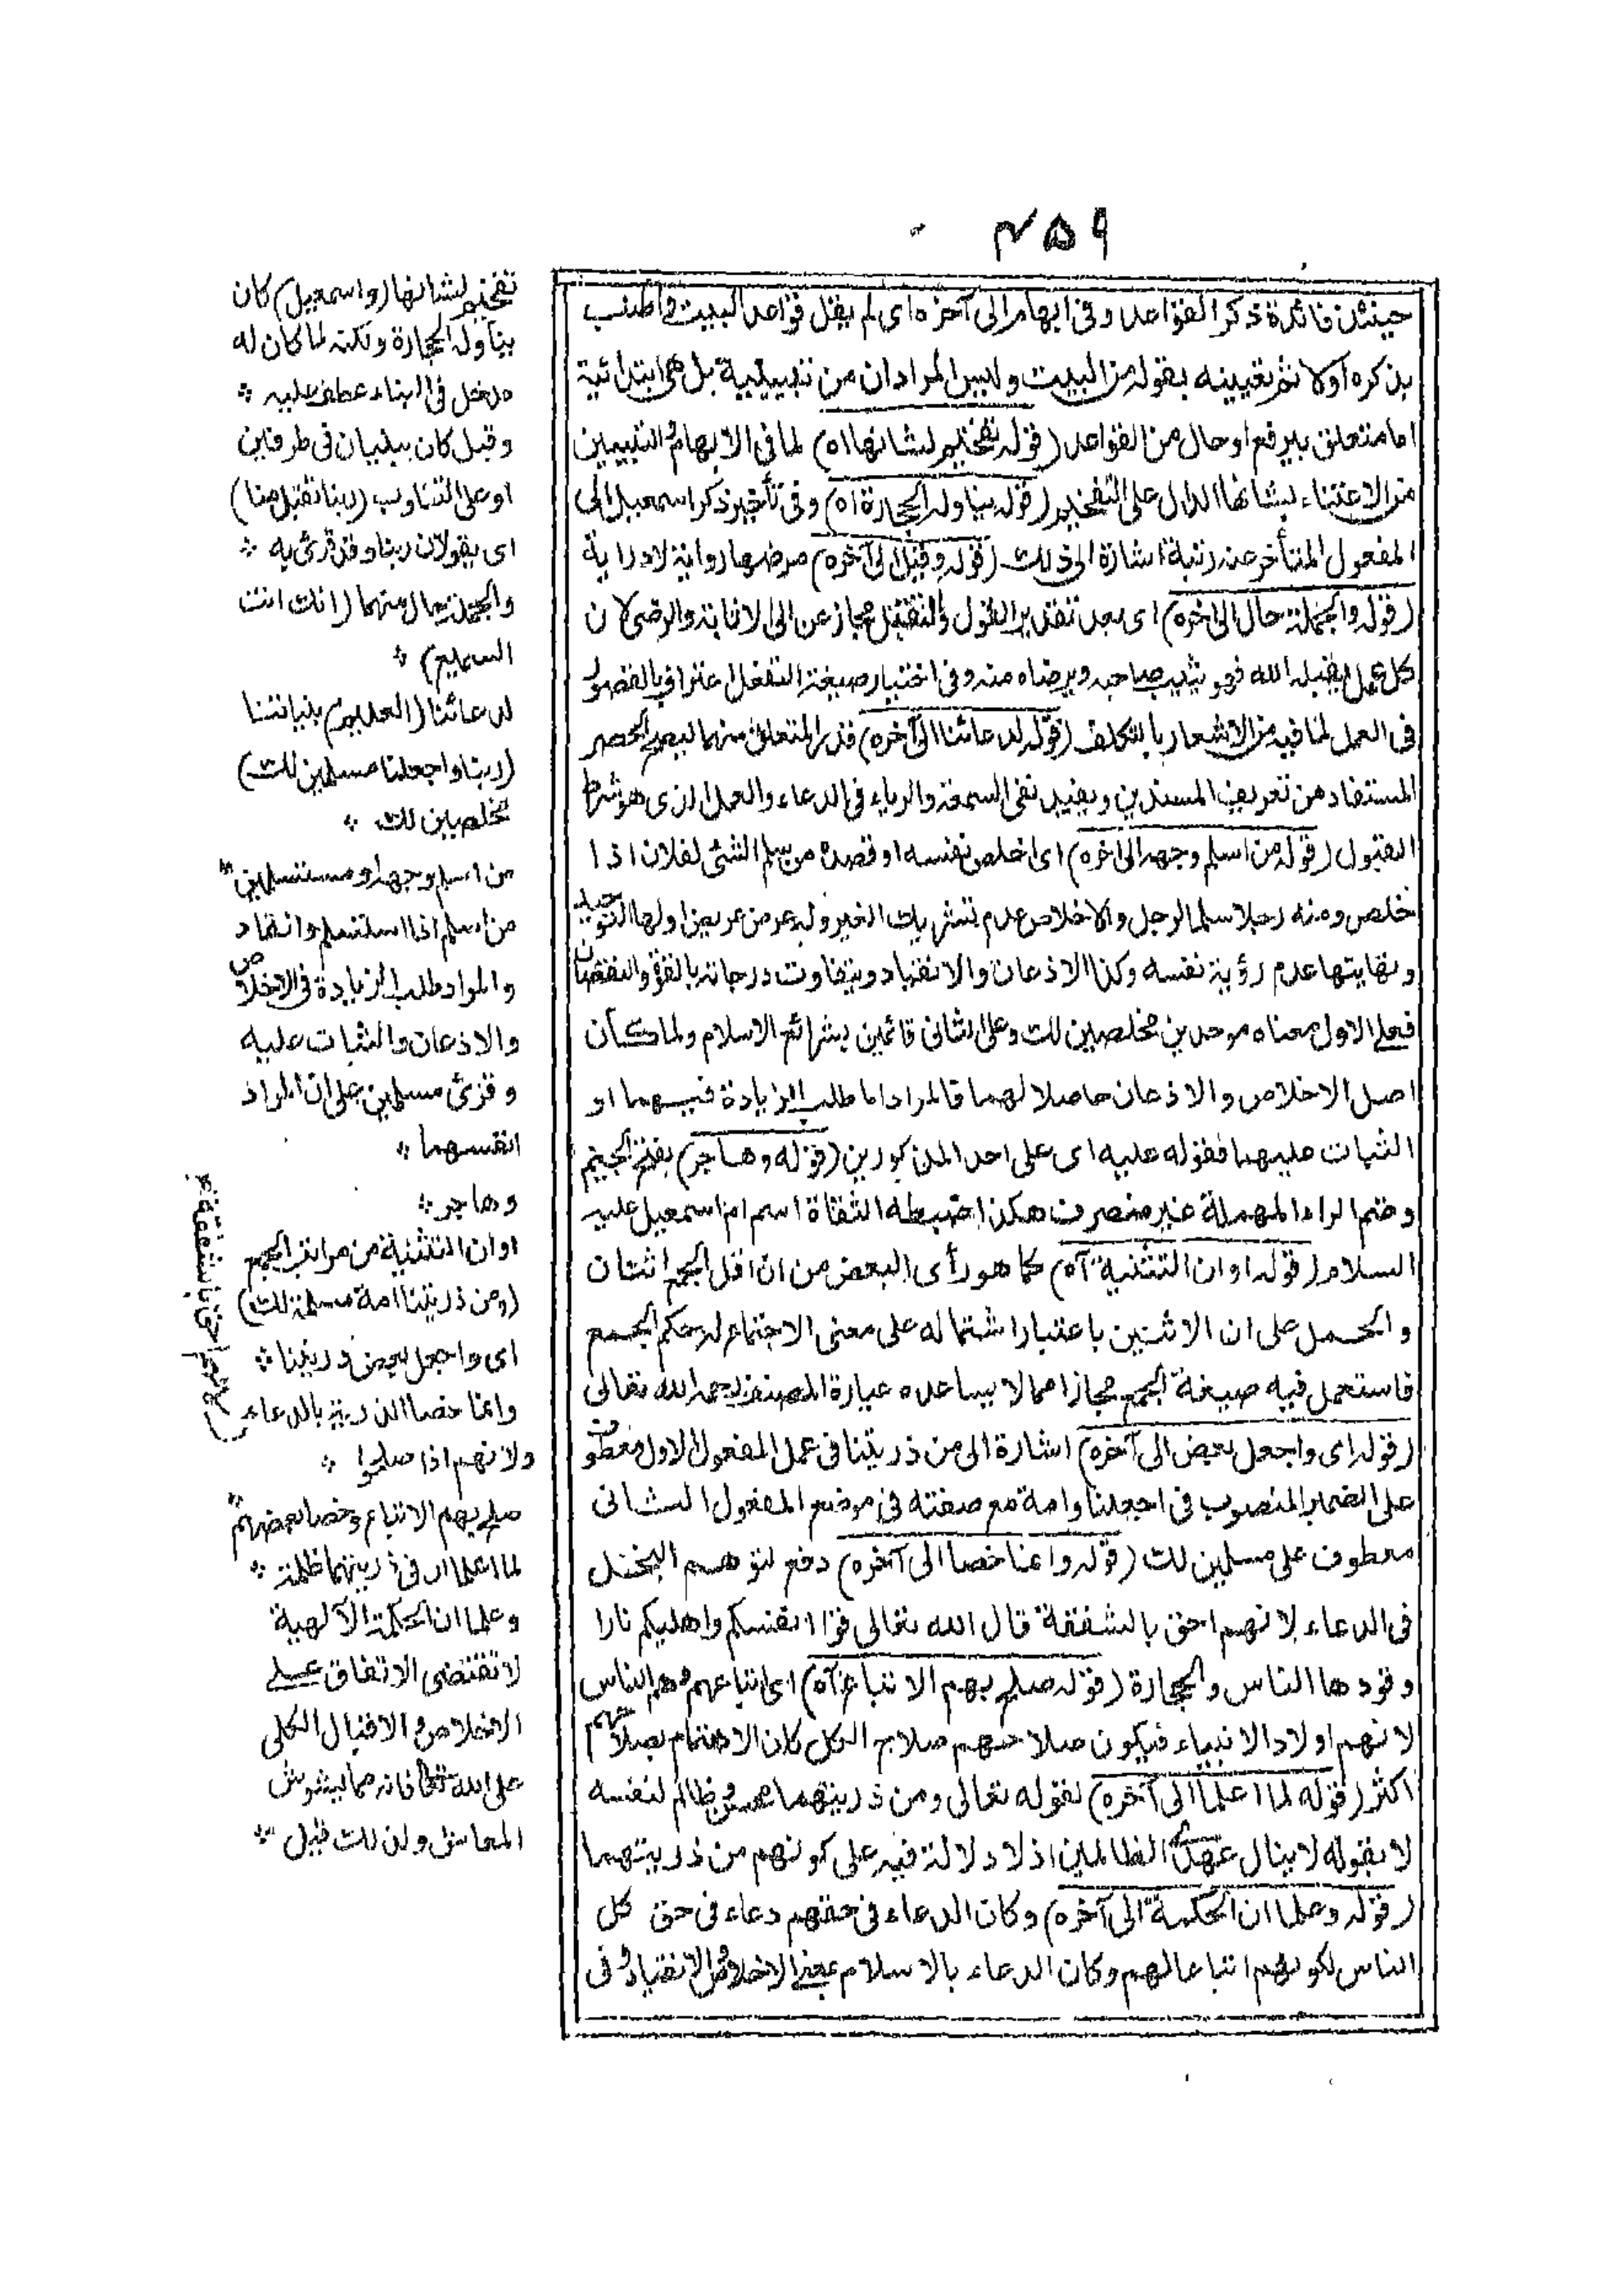 ۴۵۹
حينئذ فائدة ذكر القواعد وفى ابهام الى آخره اى لم يقل قواعد البيت واطنب
بذكره اولا ثم تعيينه بقوله من البيت وليس المراد ان من تبيينية بل هى ابتدائية
اما متعلق بيرفع او حال من القواعد (قوله تفخيم لشانها اه) لما فى الابهام والتبيين
من الاعتناء بشانها الدال على التفخيم (قوله يناوله الحجارة اه) وفى تأخير ذكر اسمعيل الى
المفعول المتأخر عنه رتبة اشارة الى ذلك (قوله وقيل الى آخره) مرضها رواية لا دراية
(قوله والجملة حال الى اخره) اى بعد تقدير القول والتقبل مجاز عن الاثابة والرضى لان
كل عمل يقبله الله فهو يثيب صاحبه ويرضاه منه وفى اختيار صيغة التفعل اعتراف بالقصور
فى العمل لما فيه من الاشعار بالتكلف (قوله لدعائنا الى آخره) قدر المتعلق منهما ليصح الحصر
المستفاد من تعريف المسندين ويفيد نفى السمعة والرياء فى الدعاء والعمل الذى هو شرط
القبول (قوله من اسلم وجهه الى اخره) اى اخلص نفسه او قصده من سلم الشئ لفلان اذا
خلص ومنه رجلا سلما لرجل والاخلاص عدم تشريك الغير وله عرض عريض اولها التوحيد
ونهايتها عدم رؤية نفسه وكذا الاذعان والانقياد ويتفاوت درجاته بالقوة والنقصان
فعلى الاول معناه موحدين مخلصين لك وعلى الثانى قائمين بشرائع الاسلام ولما كان
اصل الاخلاص والاذعان حاصلا لهما فالمراد اما طلب الزيادة فيهما او
الثبات عليهما فقوله عليه اى على احد المذكورين (قوله وهاجر) بفتح الجيم
وضم الراء المهملة غير منصرف هكذا ضبطه الثقاة اسم ام اسمعيل عليه
السلام (قوله او ان التثنية آه) كما هو رأى البعض من ان اقل الجمع اثنان
والحمل على ان الاثنين باعتبار اشتماله على معنى الاجتماع له حكم الجمع
فاستعمل فيه صيغة الجمع مجازا مما لا يساعده عبارة المصنف رحمه الله تعالى
(قوله اى واجعل بعض الى آخره) اشارة الى من ذريتنا فى عمل المفعول الاول معطوف
على الضمير المنصوب فى اجعلنا وامة مع صفته فى موضع المفعول الثانى
معطوف على مسلمين لك (قوله وانما خصا الى آخره) دفع لتوهم البخل
فى الدعاء لانهم احق بالشفقة قال الله تعالى قوا انفسكم واهليكم نارا
وقودها الناس والحجارة (قوله صلح بهم الاتباع آه) اى اتباعهم وهم الناس
لانهم اولاد الانبياء فيكون صلاحهم صلاح الكل كان الاهتمام بصلاحهم
اكثر (قوله لما اعلما الى آخره) لقوله تعالى ومن ذريتهما محسن وظالم لنفسه
لا بقوله لا ينال عهدى الظالمين اذ لا دلالة فيه على كونهم من ذريتهما
(قوله وعلما ان الحكمة الى آخره) وكان الدعاء فى حقهم دعاء فى حق كل
الناس لكونهم اتباعا لهم وكان الدعاء بالاسلام بمعنى الاخلاص والانقياد فى
تفخيم لشانها (واسمعيل) كان
يناوله الحجارة ولكنه لما كان له
مدخل فى البناء عطف عليه
وقيل كان يبنيان فى طرفين
او على التناوب (ربنا تقبل منا)
اى يقولان ربنا وقد قرئ به
والجملة حال منهما (انك انت
السميع)
لدعائنا (العليم) بنياتنا
(ربنا واجعلنا مسلمين لك)
مخلصين لك
من اسلم وجهه او مستسلمين
من اسلم اذا استسلم وانقاد
والمراد طلب الزيادة فى الاخلاص
والاذعان والثبات عليه
وقرئ مسلمين على ان المراد
انفسهما
وهاجر
او ان التثنية من مراتب الجمع
(ومن ذريتنا امة مسلمة لك)
اى واجعل بعض ذريتنا
وانما خصا الذرية بالدعاء
لانهم احق بالشفقة
ولانهم اذا صلحوا
صلح بهم الاتباع وخصا بعضهم
لما اعلما ان فى ذريتهما ظلمة
وعلما ان الحكمة الآلهية
لا تقتضى الاتفاق على
الاخلاص والاقبال الكلى
على الله تعالى فانه مما يشوش
المعاش ولذلك قيل